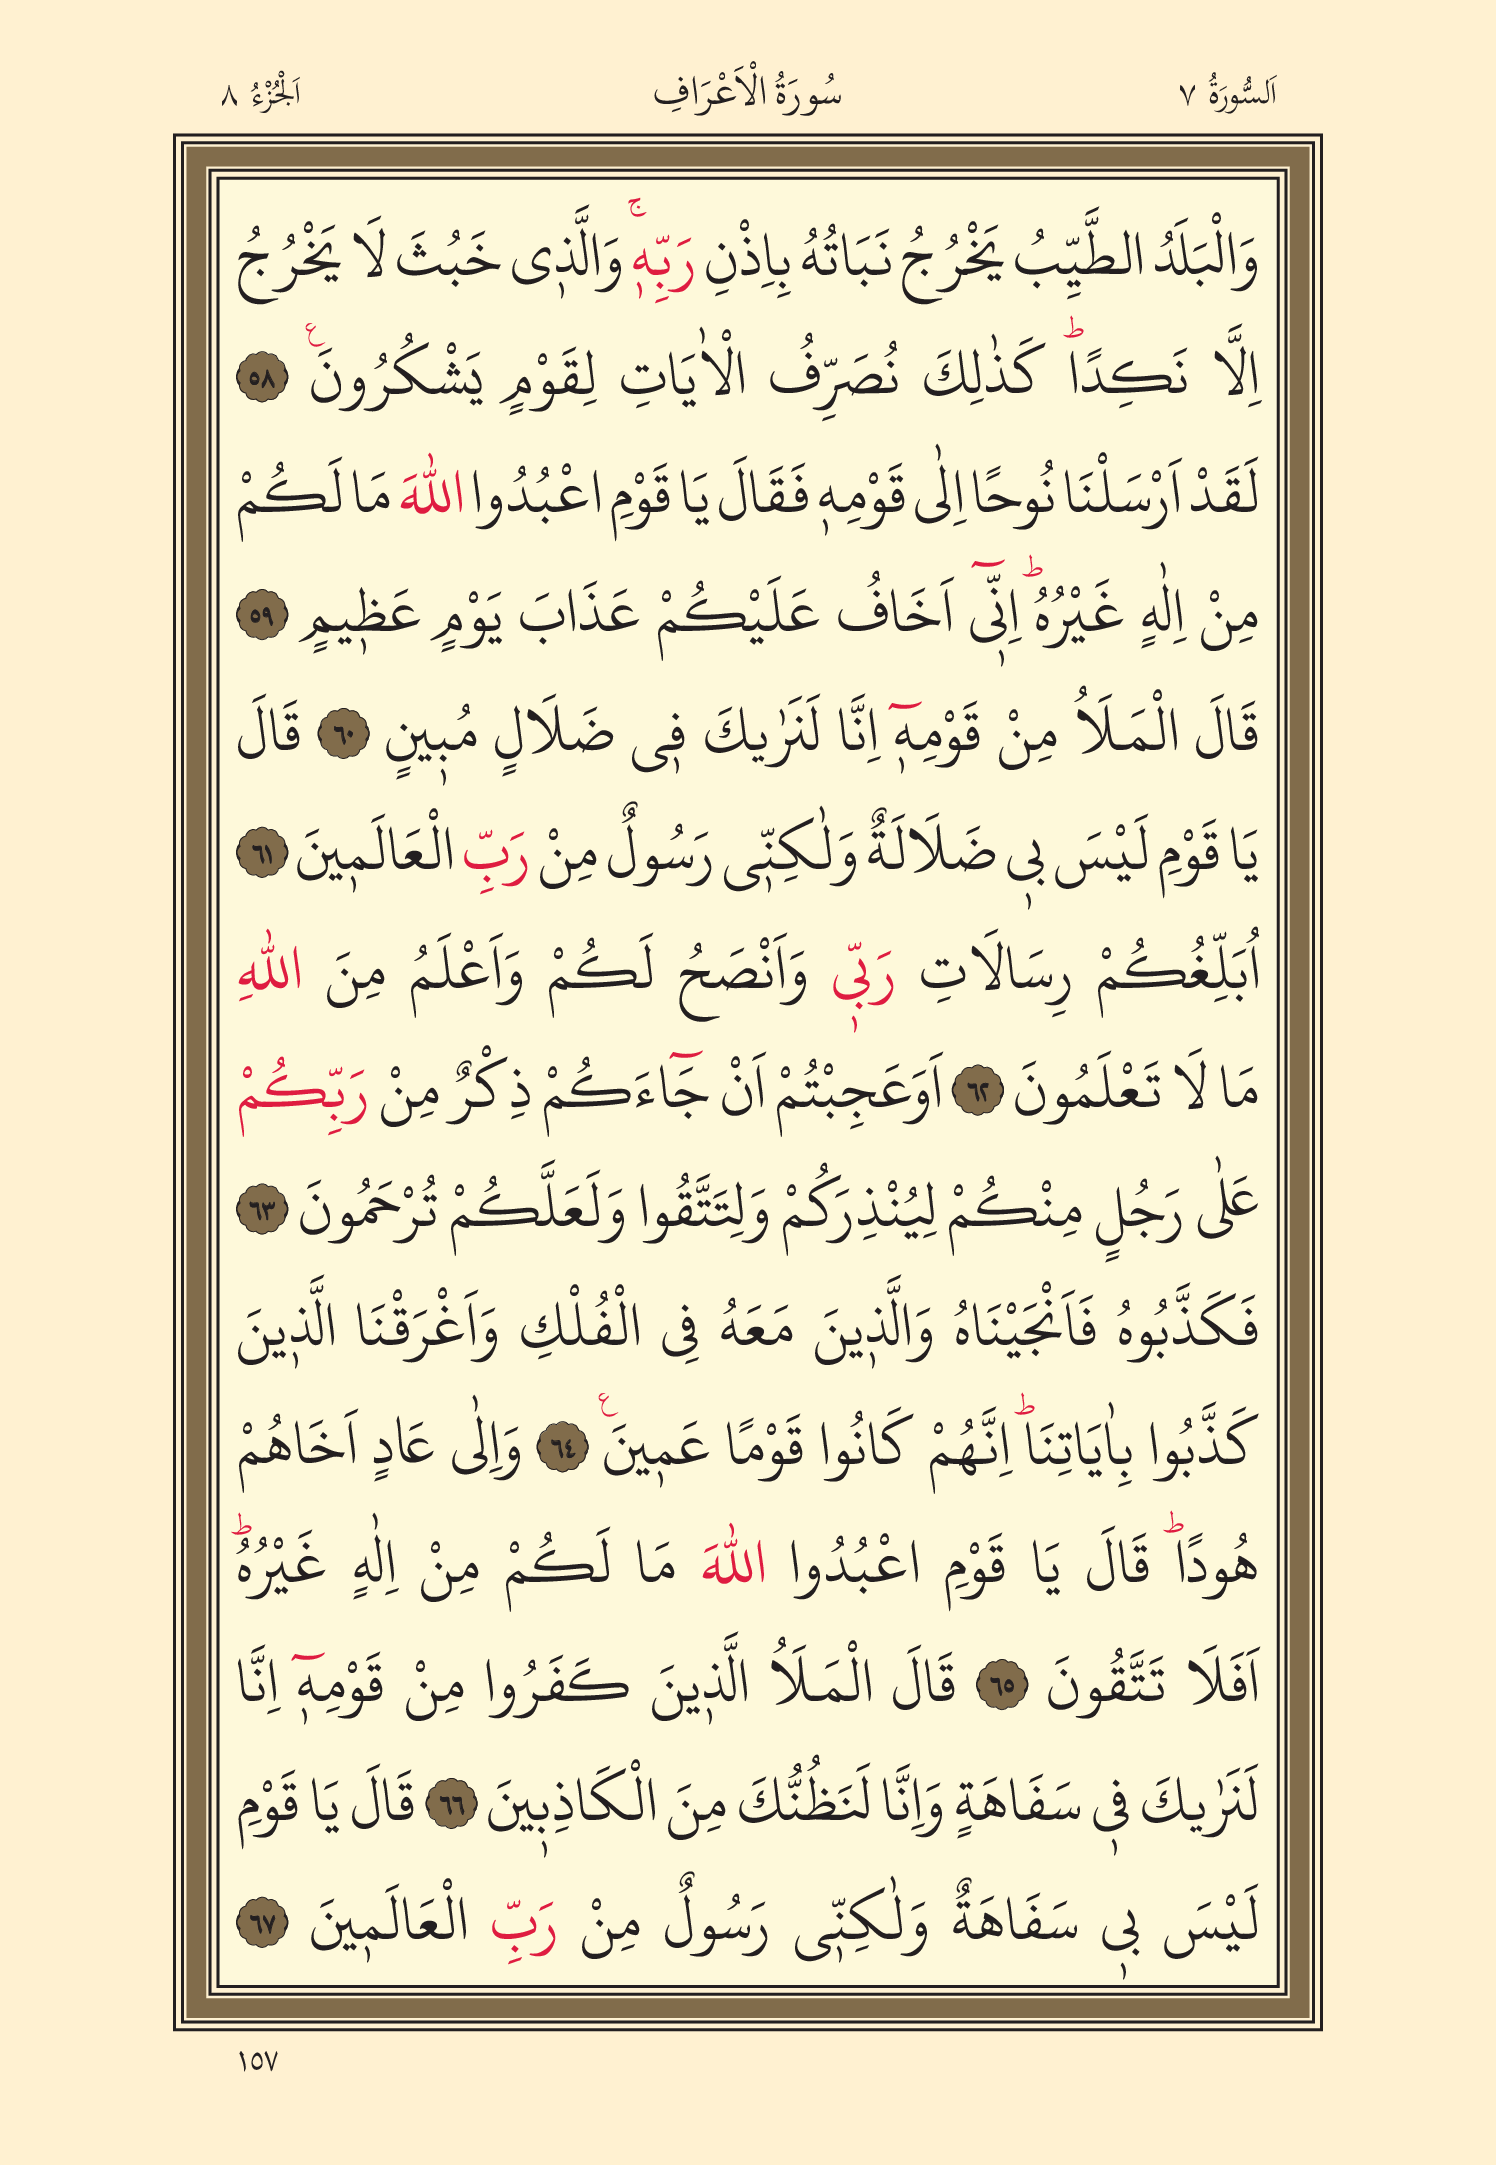 اَلسُّورَةُ ٧ سُورَةُ الْاَعْرَافِ اَلْجُزْءُ ٨
وَالْبَلَدُ الطَّيِّبُ يَخْرُجُ نَبَاتُهُ بِاِذْنِ رَبِّهٖۚ وَالَّذٖى خَبُثَ لَا يَخْرُجُ
اِلَّا نَكِدًاؕ كَذٰلِكَ نُصَرِّفُ الْاٰيَاتِ لِقَوْمٍ يَشْكُرُونَࣖ ٥٨
لَقَدْ اَرْسَلْنَا نُوحًا اِلٰى قَوْمِهٖ فَقَالَ يَا قَوْمِ اعْبُدُوا اللّٰهَ مَا لَكُمْ
مِنْ اِلٰهٍ غَيْرُهُؕ اِنّٖٓى اَخَافُ عَلَيْكُمْ عَذَابَ يَوْمٍ عَظٖيمٍ ٥٩
قَالَ الْمَلَاُ مِنْ قَوْمِهٖٓ اِنَّا لَنَرٰيكَ فٖى ضَلَالٍ مُبٖينٍ ٦٠ قَالَ
يَا قَوْمِ لَيْسَ بٖى ضَلَالَةٌ وَلٰكِنّٖى رَسُولٌ مِنْ رَبِّ الْعَالَمٖينَ ٦١
اُبَلِّغُكُمْ رِسَالَاتِ رَبّٖى وَاَنْصَحُ لَكُمْ وَاَعْلَمُ مِنَ اللّٰهِ
مَا لَا تَعْلَمُونَ ٦٢ اَوَعَجِبْتُمْ اَنْ جَٓاءَكُمْ ذِكْرٌ مِنْ رَبِّكُمْ
عَلٰى رَجُلٍ مِنْكُمْ لِيُنْذِرَكُمْ وَلِتَتَّقُوا وَلَعَلَّكُمْ تُرْحَمُونَ ٦٣
فَكَذَّبُوهُ فَاَنْجَيْنَاهُ وَالَّذٖينَ مَعَهُ فِى الْفُلْكِ وَاَغْرَقْنَا الَّذٖينَ
كَذَّبُوا بِاٰيَاتِنَاؕ اِنَّهُمْ كَانُوا قَوْمًا عَمٖينَࣖ ٦٤ وَاِلٰى عَادٍ اَخَاهُمْ
هُودًاؕ قَالَ يَا قَوْمِ اعْبُدُوا اللّٰهَ مَا لَكُمْ مِنْ اِلٰهٍ غَيْرُهُؕ
اَفَلَا تَتَّقُونَ ٦٥ قَالَ الْمَلَاُ الَّذٖينَ كَفَرُوا مِنْ قَوْمِهٖٓ اِنَّا
لَنَرٰيكَ فٖى سَفَاهَةٍ وَاِنَّا لَنَظُنُّكَ مِنَ الْكَاذِبٖينَ ٦٦ قَالَ يَا قَوْمِ
لَيْسَ بٖى سَفَاهَةٌ وَلٰكِنّٖى رَسُولٌ مِنْ رَبِّ الْعَالَمٖينَ ٦٧
١٥٧